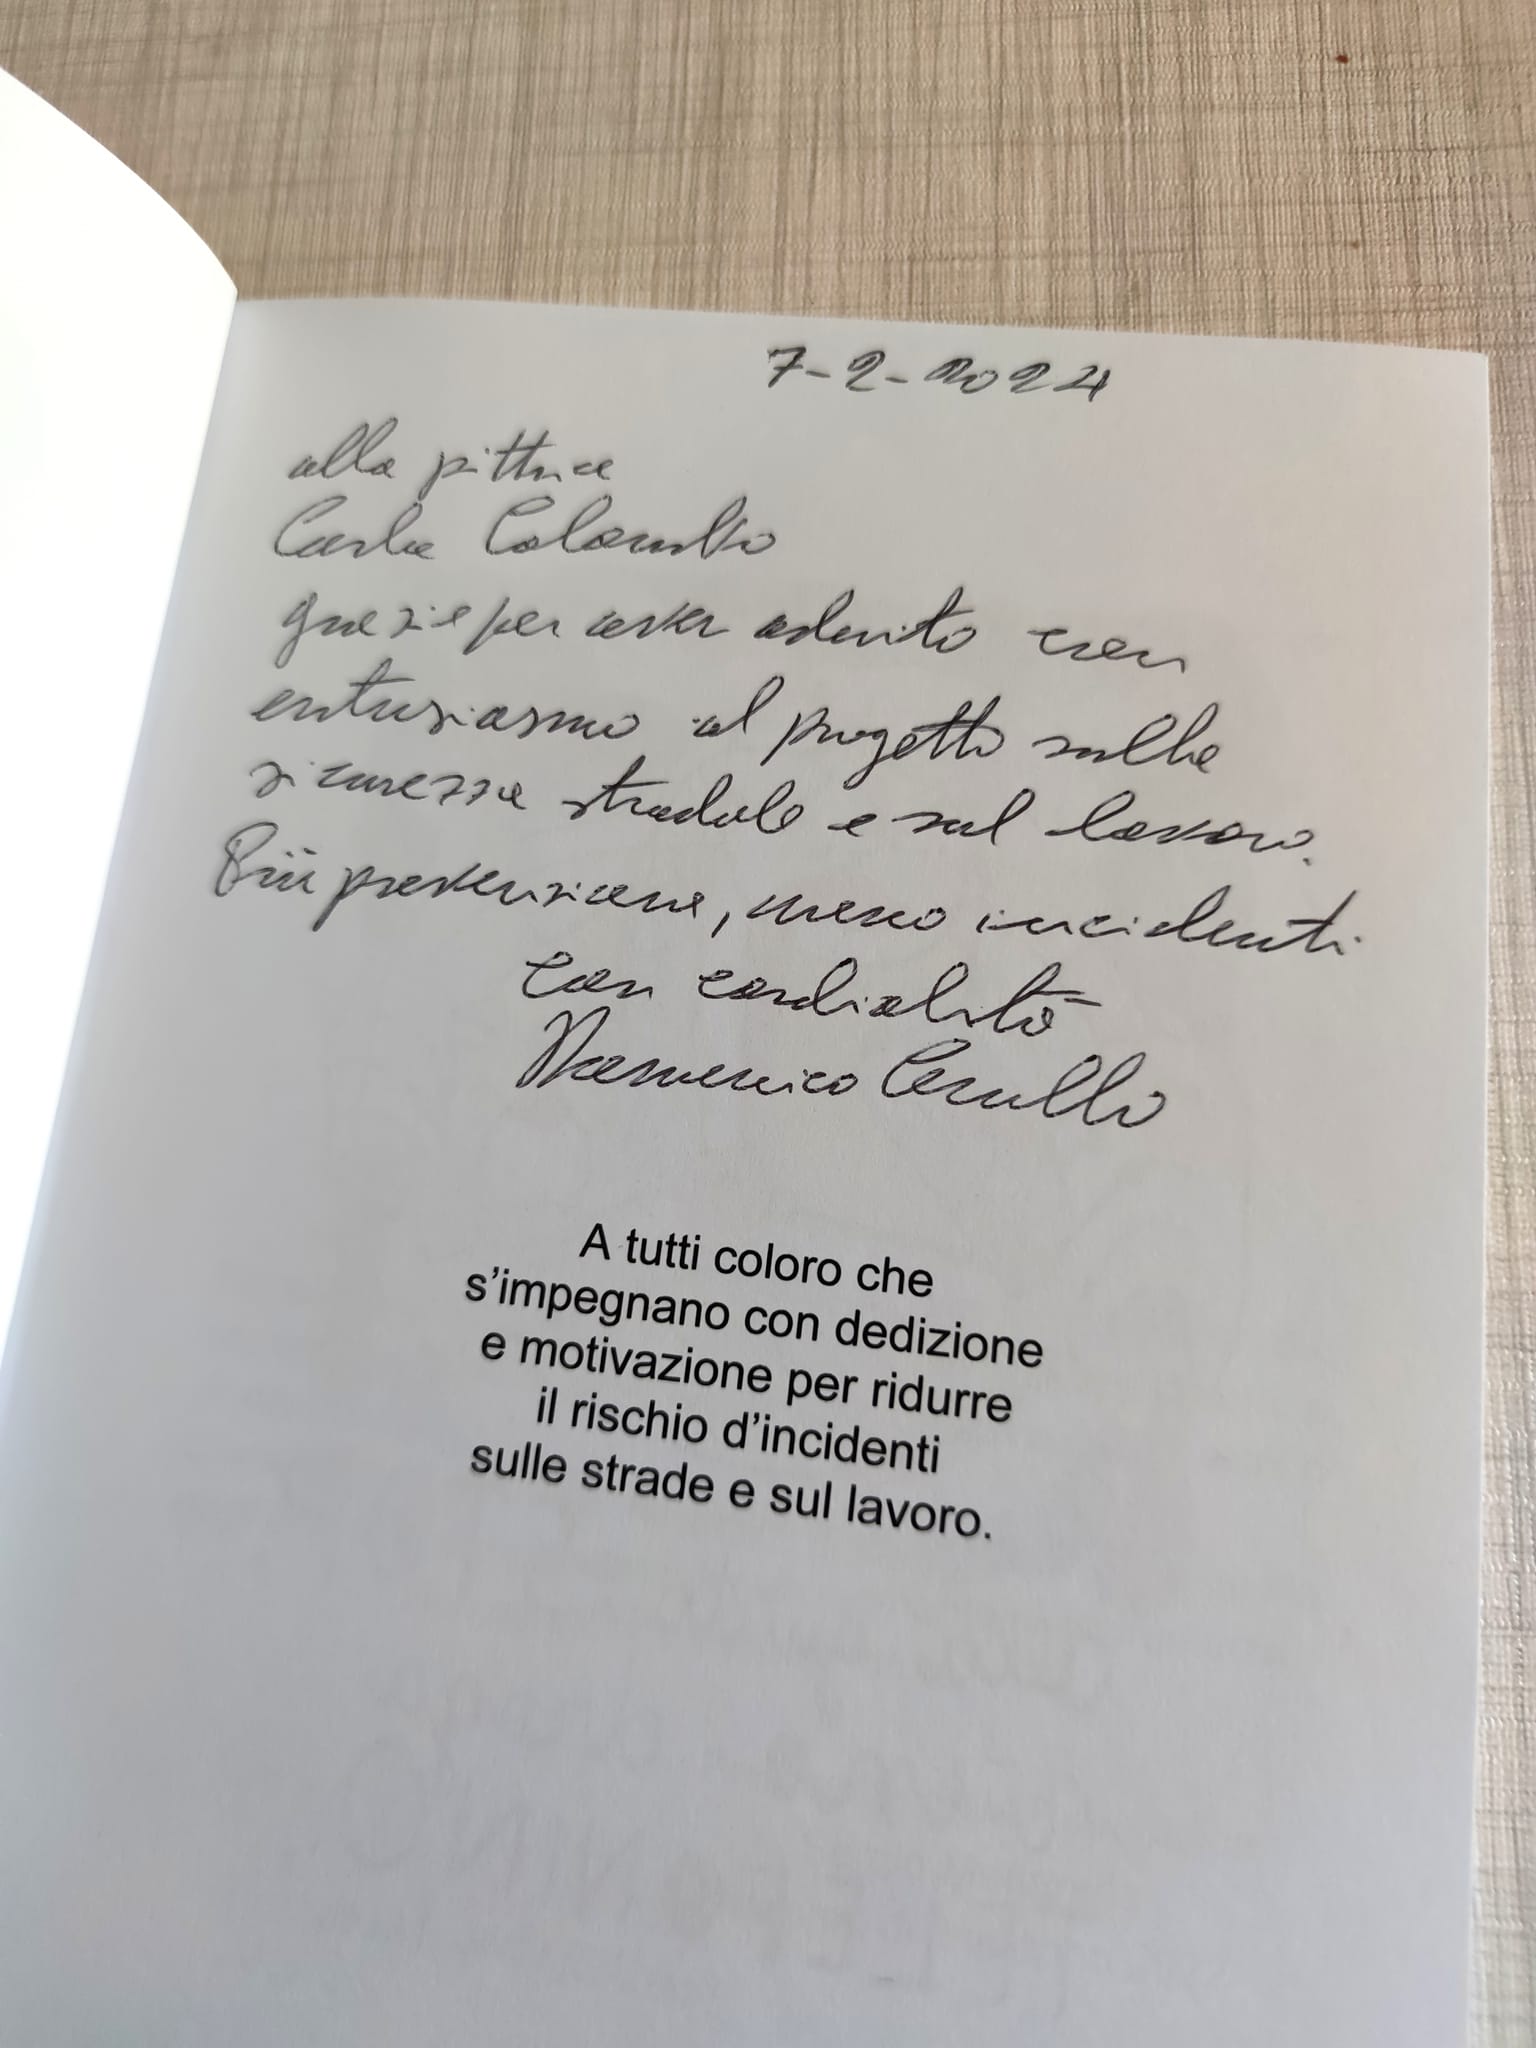 7-2-2024
alla pittrice
Carla Colombo
grazie per aver aderito con
entusiasmo al progetto sulla
sicurezza stradale e sul lavoro.
Più prevenzione, meno incidenti
con cordialità
Domenico Cerullo
A tutti coloro che
s'impegnano con dedizione
e motivazione per ridurre
il rischio d'incidenti
sulle strade e sul lavoro.